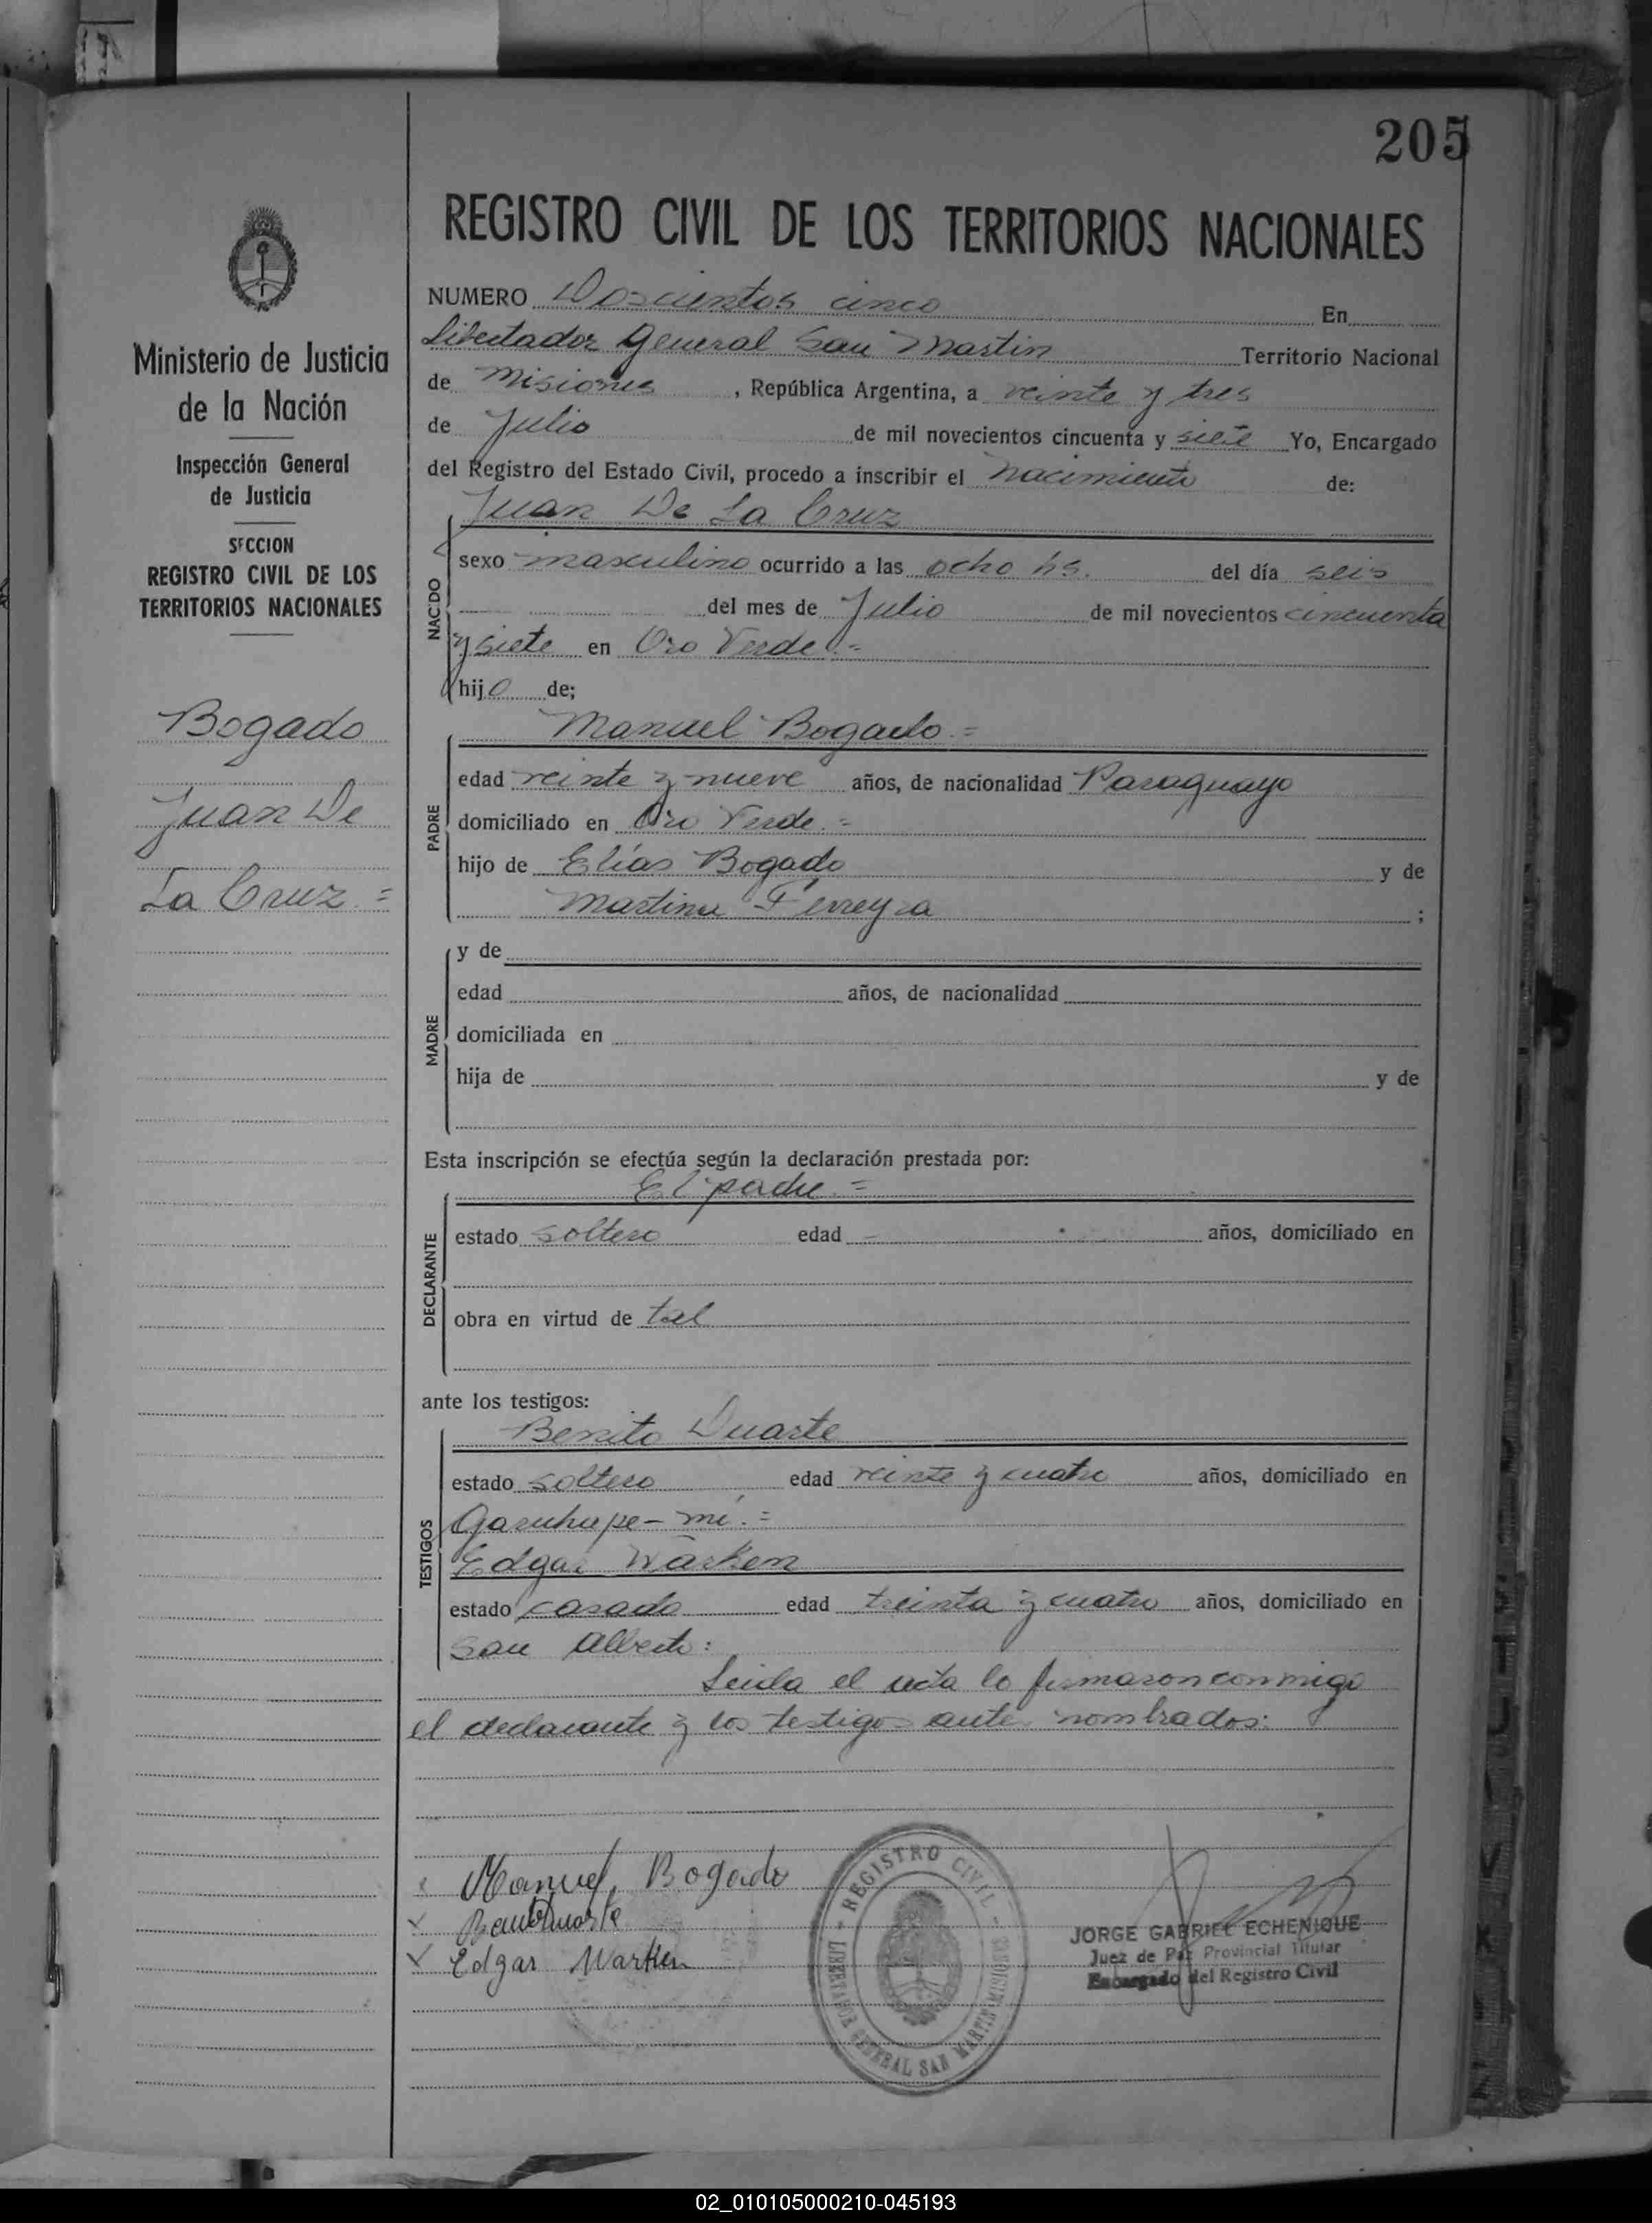 205
REGISTRO CIVIL DE LOS TERRITORIOS NACIONALES
Ministerio de Justicia
de la Nación
Inspección General
de Justicia
SECCION
REGISTRO CIVIL DE LOS
TERRITORIOS NACIONALES
Bogado
Juan De
La Cruz =
NUMERO Doscientos cinco En
Libertador General San Martin Territorio Nacional
de Misiones , República Argentina, a veinte y tres
de Julio de mil novecientos cincuenta y siete Yo, Encargado
del Registro del Estado Civil, procedo a inscribir el nacimiento de:
Juan De La Cruz
NACIDO
sexo masculino ocurrido a las ocho hs. del día seis
del mes de Julio de mil novecientos cincuenta
y siete en Oro Verde.=
hijo de;
Manuel Bogado.=
PADRE
edad veinte y nueve años, de nacionalidad Paraguayo
domiciliado en Oro Verde.=
hijo de Elías Bogado y de
Martina Ferreyra ;
MADRE
y de
edad años, de nacionalidad
domiciliada en
hija de y de
Esta inscripción se efectúa según la declaración prestada por:
El padre.=
DECLARANTE
estado soltero edad - años, domiciliado en
obra en virtud de tal
ante los testigos:
Benito Duarte
TESTIGOS
estado soltero edad veinte y cuatro años, domiciliado en
Garuhape-mí.=
Edgar Warken
estado casado edad treinta y cuatro años, domiciliado en
San Alberto:
Leida el acta lo firmaron conmigo
el declarante y los testigos antes nombrados:
Manuel Bogado
Benito Duarte
Edgar Warken
REGISTRO CIVIL
LIBERTADOR GENERAL SAN MARTIN MISIONES
JORGE GABRIEL ECHENIQUE
Juez de Paz Provincial Titular
Encargado del Registro Civil
02_010105000210-045193